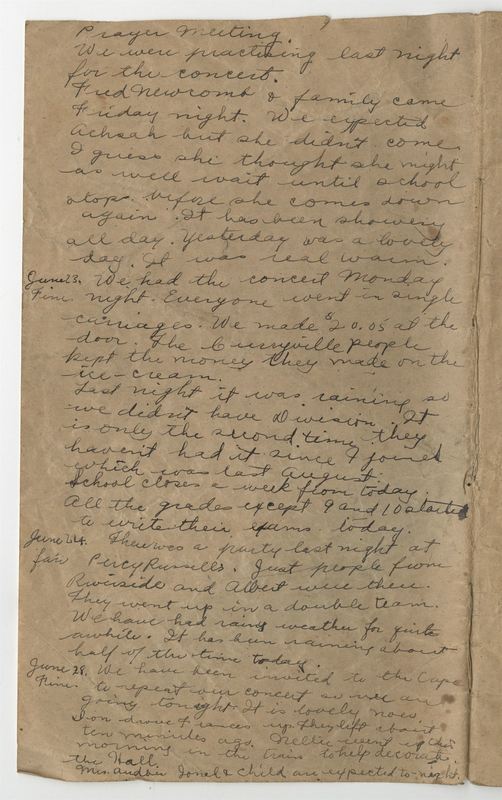 Prayer Meeting.
We were practising last night
for the concert.
Fred Newcomb & family came
Friday night. We expected
Achsah but she didn't come.
I guess she thought she might
as well wait until school
stops before she comes down
again. It has been showery
all day. Yesterday was a lovely
day. It was real warm.
June 23. We had the concert Monday
Fine night. Everyone went in single
carriages. We made $20.05 at the
door. The Curryville people
kept the money they made on the
ice-cream.
Last night it was raining so
we didn't have Division. It
is only the second time they
haven't had it since I joined
which was last August.
School closes a week from today.
All the grades except 9 and 10 started
to write their exams today.
June 24. There was a party last night at
fair Percy Russells. Just people from
Riverside and Albert were there.
They went up in a double team.
We have had rainy weather for quite
awhile. It has been raining about
half of the time today.
June 28. We have been invited to the Cape
Fine. to repeat our concert so we are
going tonight. It is lovely now.
Don drove Frances up. They left about
ten minutes ago. Nellie went up this
morning in the train to help decorate
the Hall.
Mrs. Jones & child are expected to-night.